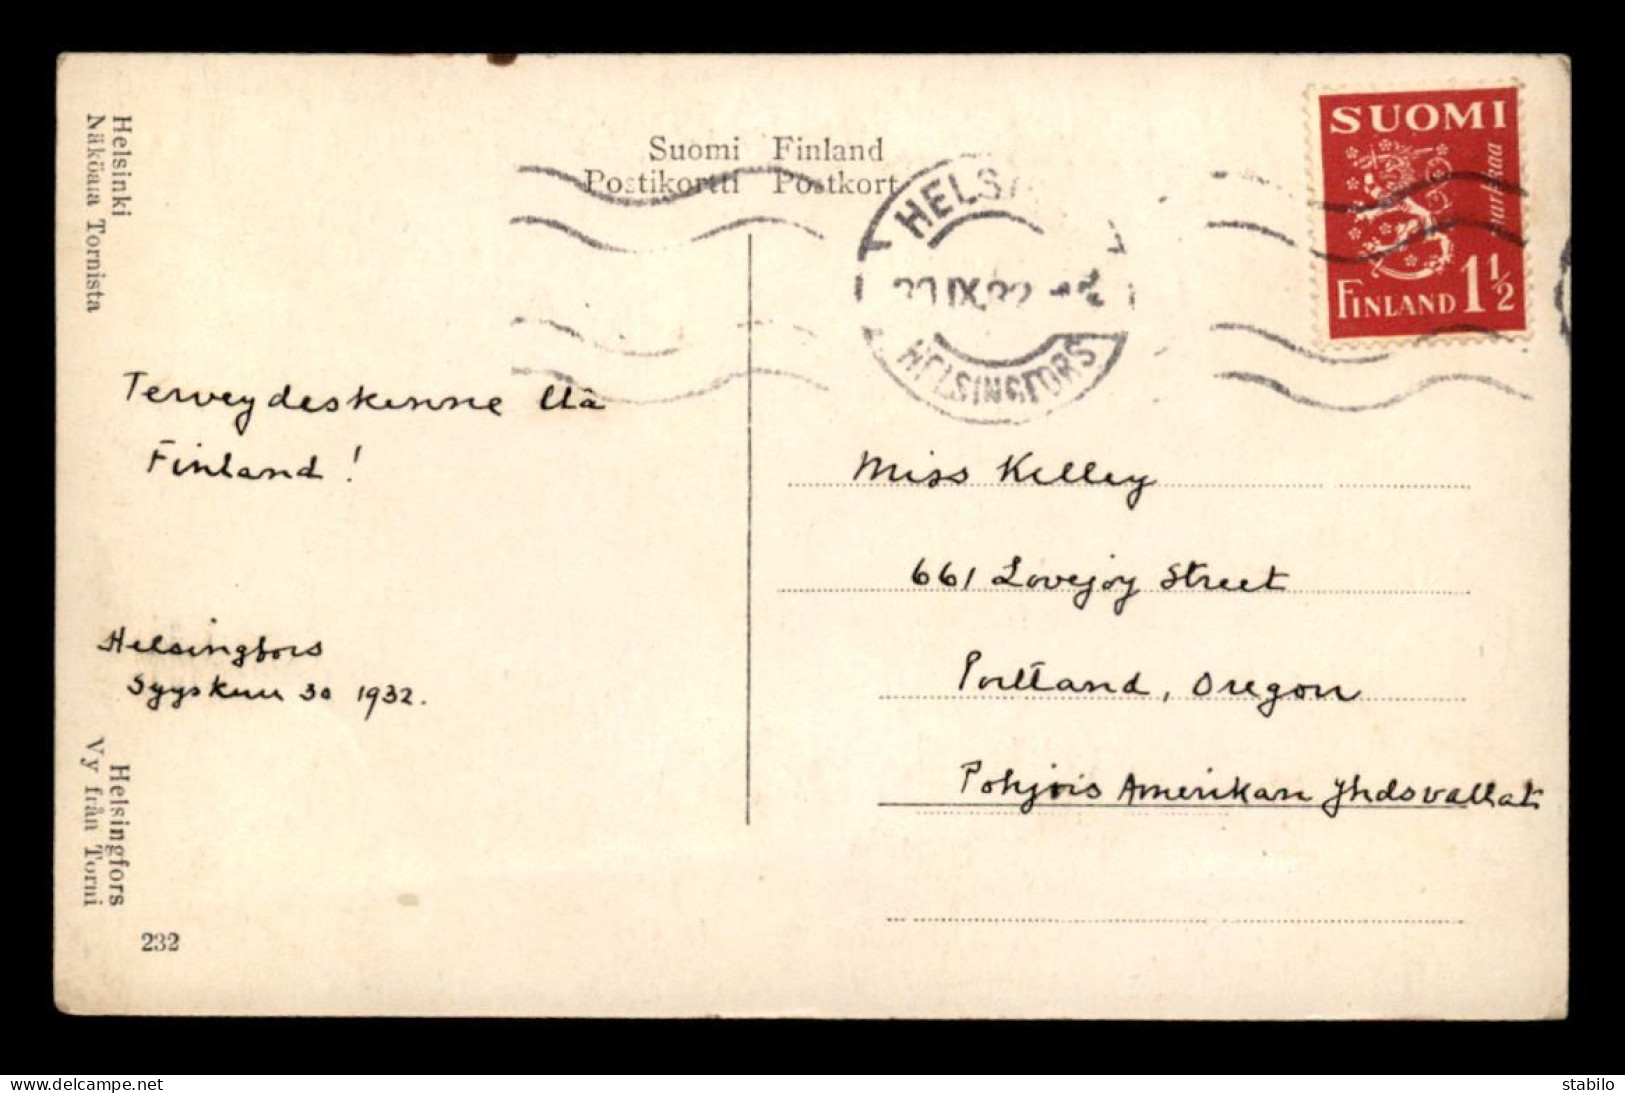 Helsinki
Näköala Tornista
Suomi Finland
Postikortti Postkort
HELSI
IX.32
HELSINGFORS
SUOMI
markkaa
FINLAND 1½
Terveydeskenne
Finland!
Helsingfors
Syyskuu 30 1932.
Miss Kelley
661 Lovejoy Street
Portland, Oregon
Pohjois Amerikan Yhdsvallat
Helsingfors
Vy från Torni
232
www.delcampe.net
stabilo